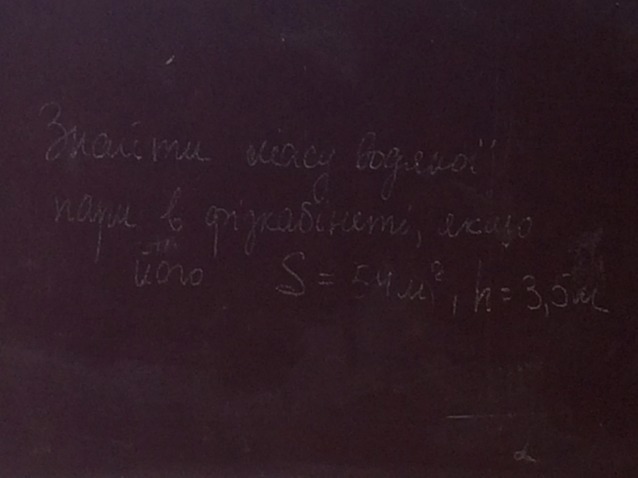 Знайти масу водяної
пари в фізкабінеті, якщо
його S = 54 м², h = 3,5 м